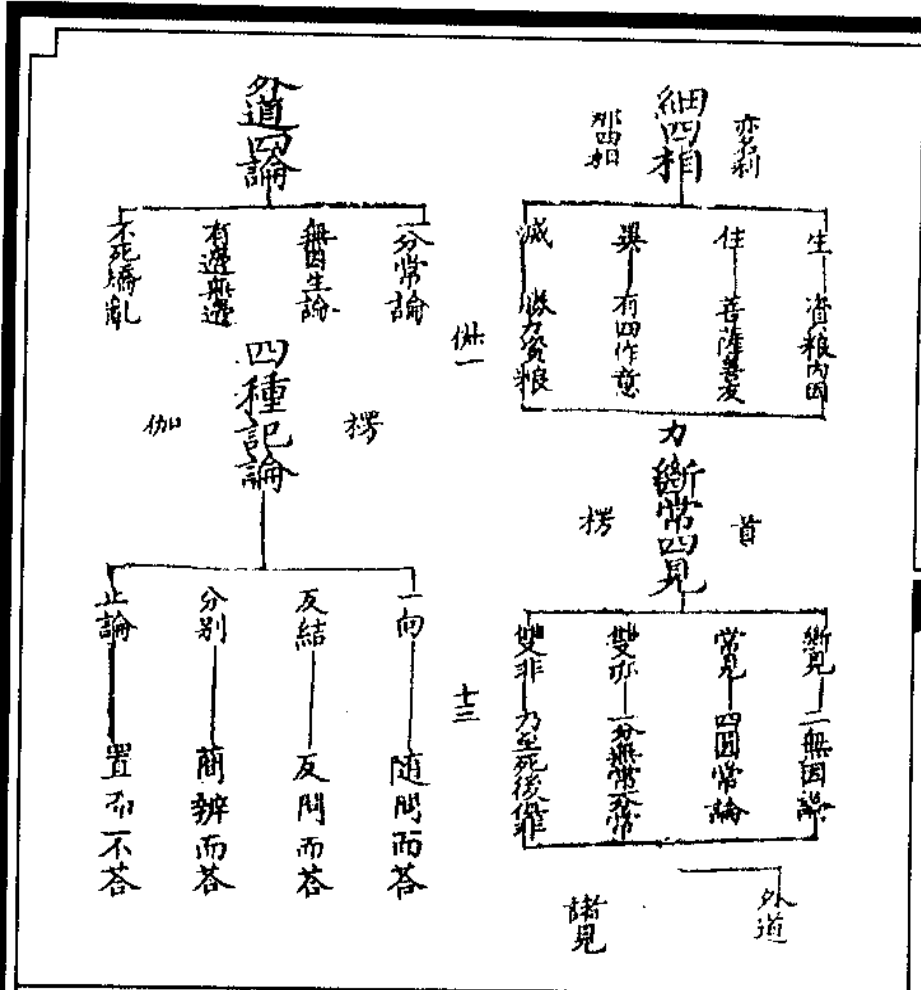 細四相
亦名剎
那四相
生 資粮內因
住 菩薩善友
異 有四作意
滅 勝力資粮
力
斷常四見
首
楞
斷見 二無因論
常見 四圓常論
雙亦 一分無常一分常
雙非 乃至死後俱非
外道
諸見
外道四論
一分常論
無因生論
有邊無邊
不死矯亂
四種記論
楞
伽
一向 随問而答
反結 反問而答
分别 蕳辨而荅
止論 置而不荅
十三